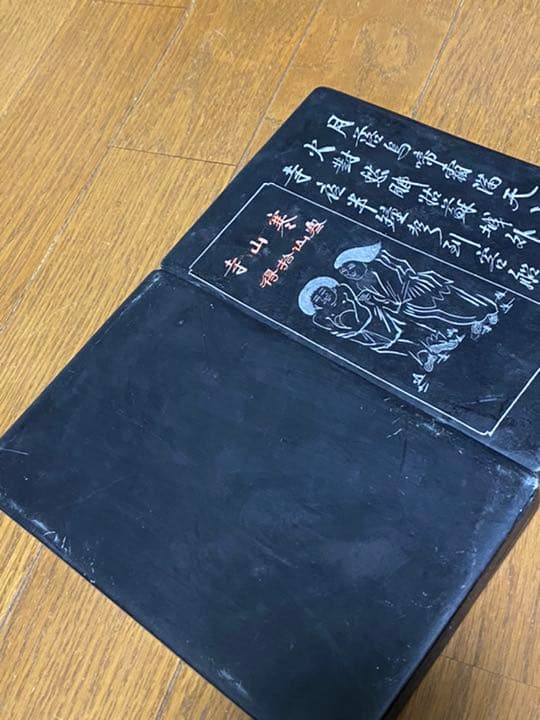 月落烏啼霜滿天
火對愁眠姑蘇城外
寺夜半鐘聲到客船
寒山寺
寒山拾得